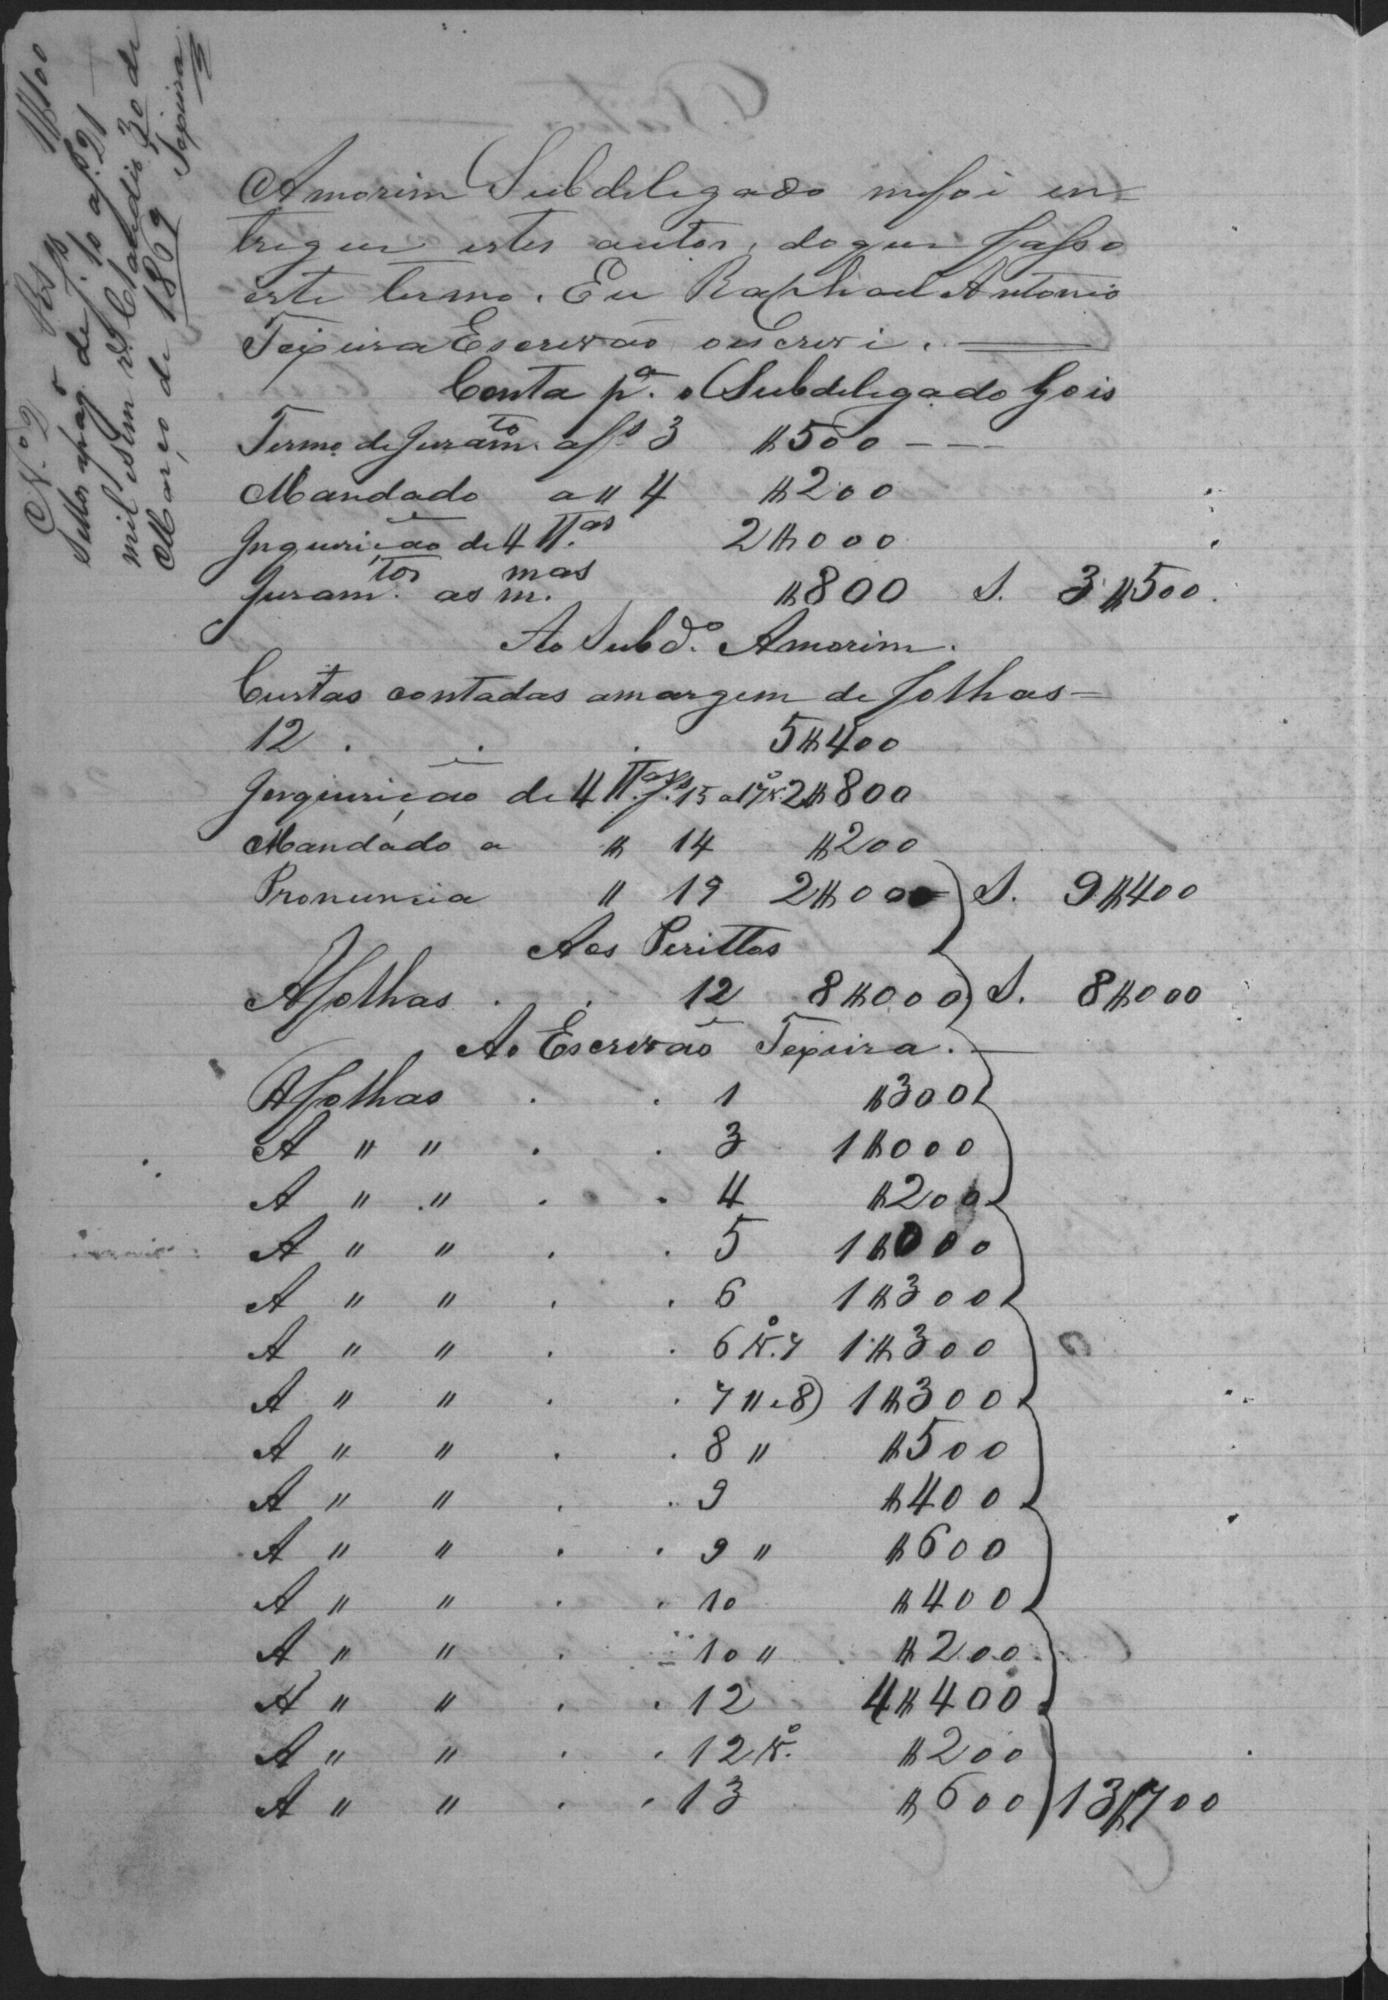 N.º 2 Rs 1$100
Sellos apág de fs 10 a fs 21
mil e cem rs. Claudio 30 de
Março de 1869
Teixeira
Amorim Subdelegado mefoi en-
tregue estes autos, doque fasso
este termo. Eu Raphael Antonio
Teixeira Escrivão oescrevi.
Conta p.ª o Subdelegado Gois
Termo de Juram.to afs 3 $500
Mandado a " 4 $200
Inquirição de 4 TT.as 2$000
Juram.tos as m.mas $800 S. 3$500.
Ao Subd.º Amorim.
Custas contadas amargem de folhas-
12 . . . 5$400
Inquirição de 4 TT.as fs. 15 a 17 v.º 2$800
Mandado a " 14 $200
Pronuncia " 19 2$000 S. 9$400
Aos Perittos
Afolhas . . 12 8$000 S. 8$000
Ao Escrivão Teixeira.
Afolhas . . 1 $300
A " " . . 3 1$000
A " " . . 4 $200
A " " . . 5 1$000
A " " . . 6 1$300
A " " . . 6 v.º 7 1$300
A " " . . 7 " e 8) 1$300
A " " . . 8 " $500
A " " . . 9 $400
A " " . . 9 " $600
A " " . . 10 $400
A " " . . 10 " $200
A " " . . 12 4$400
A " " . . 12 v.º $200
A " " . . 13 $600 13$700